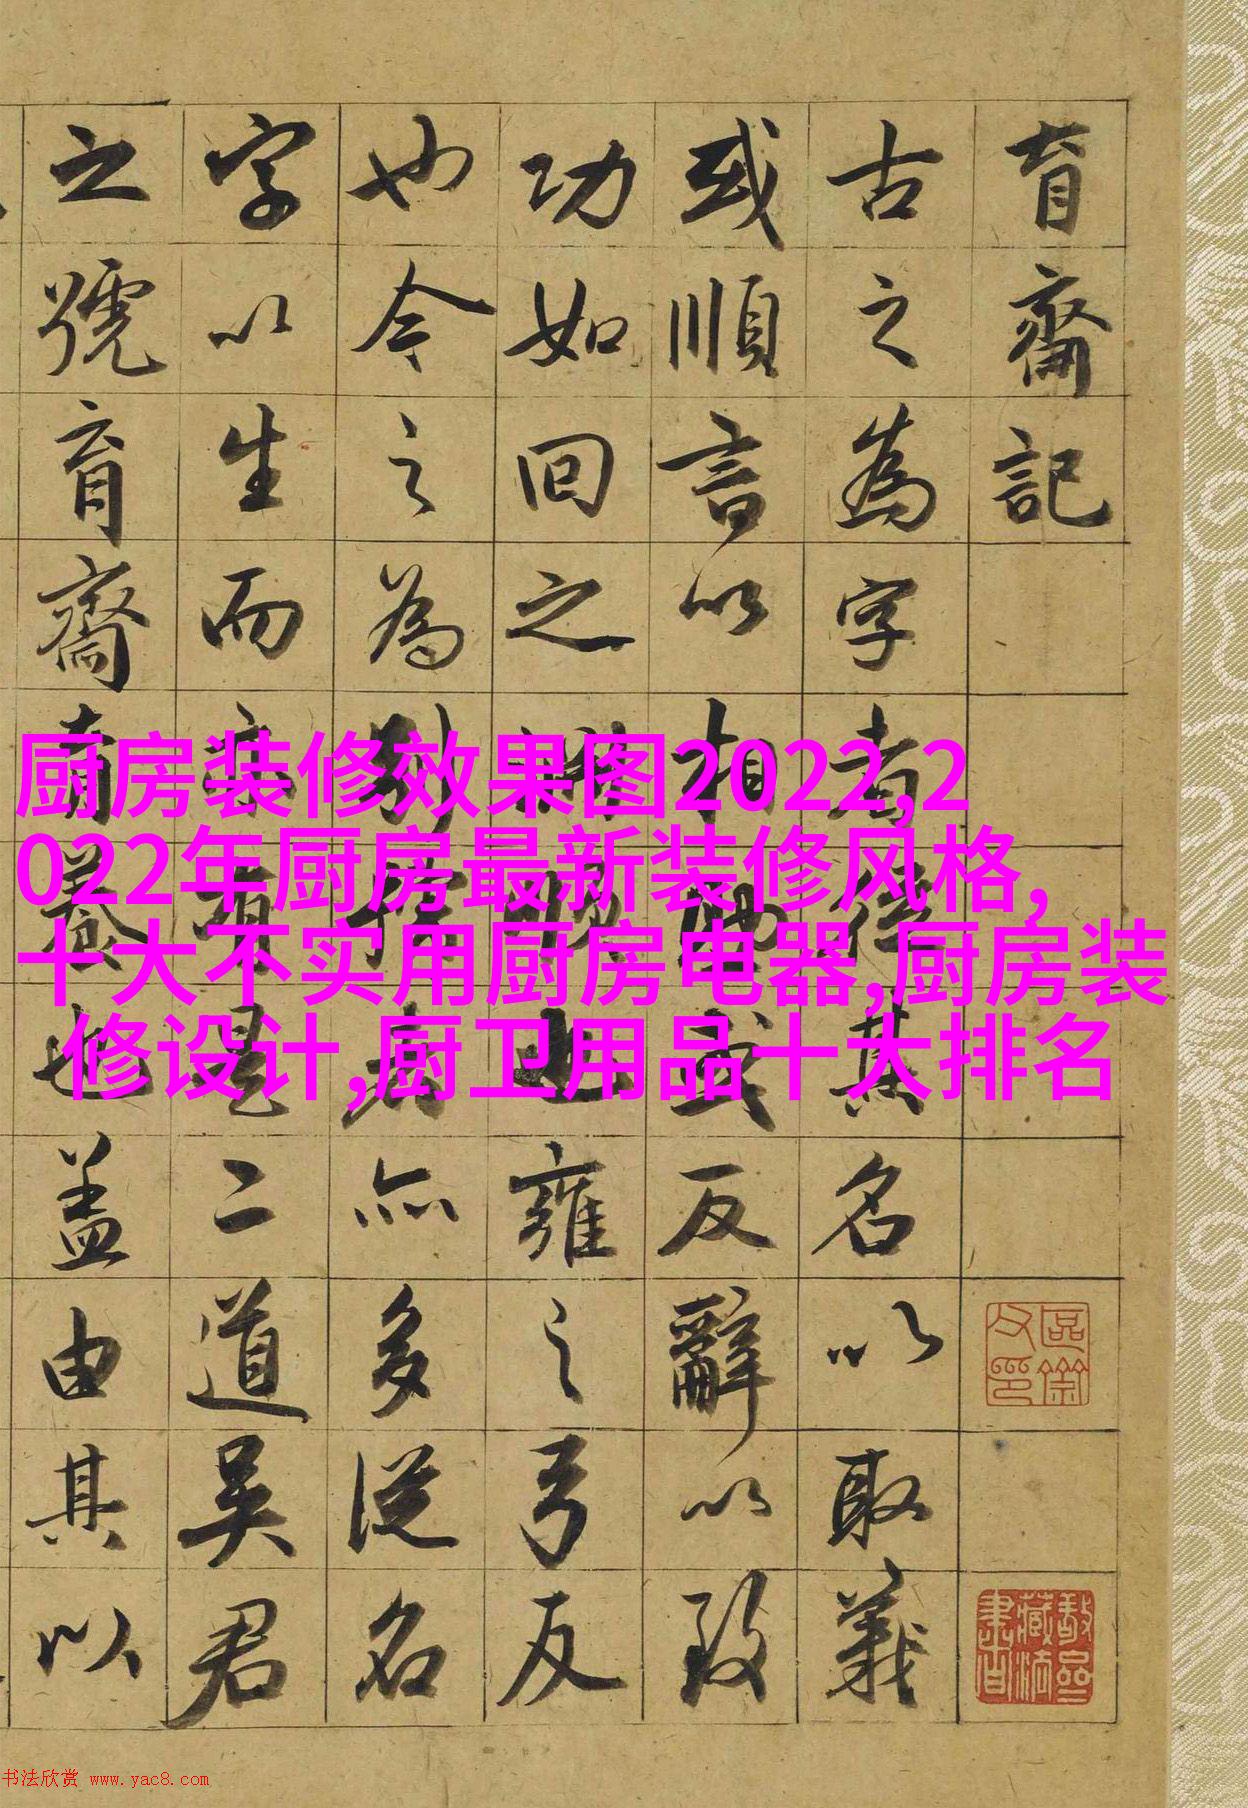 育齋記
古之為字者其名以取義
或順言以相或反辭以致
功如回之淵也雍之弓反
也今之為別號者亦多從名
字以生而亦有是二道吳君
之號育齋育養也蓋由其以
厨房装修效果图2022,2
022年厨房最新装修风格,
十大不实用厨房电器,厨房装
修设计,厨卫用品十大排名
书法欣赏 www.yac8.com